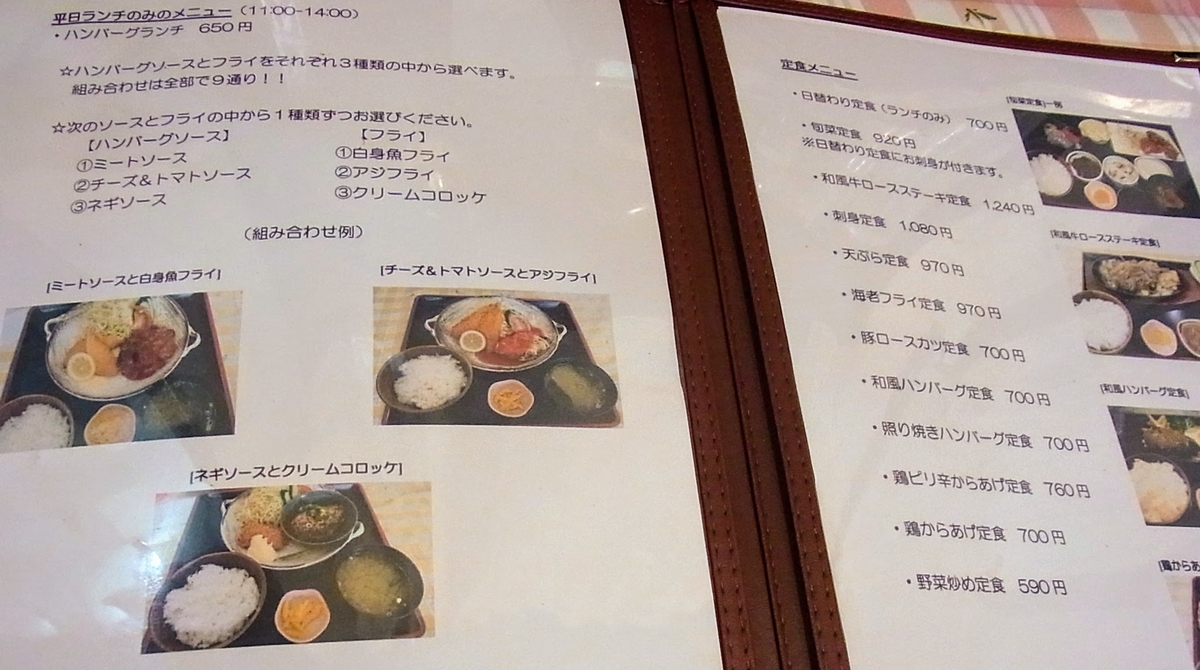 平日ランチのみのメニュー（11:00-14:00）
・ハンバーグランチ　650円
☆ハンバーグソースとフライをそれぞれ３種類の中から選べます。
組み合わせは全部で９通り！！
☆次のソースとフライの中から１種類ずつお選びください。
【ハンバーグソース】　【フライ】
①ミートソース　①白身魚フライ
②チーズ＆トマトソース　②アジフライ
③ネギソース　③クリームコロッケ
（組み合わせ例）
[ミートソースと白身魚フライ]
[チーズ＆トマトソースとアジフライ]
[ネギソースとクリームコロッケ]
定食メニュー
・日替わり定食（ランチのみ）　700円
・旬菜定食　920円
※日替わり定食にお刺身が付きます。
・和風牛ロースステーキ定食　1,240円
・刺身定食　1,080円
・天ぷら定食　970円
・海老フライ定食　970円
・豚ロースカツ定食　700円
・和風ハンバーグ定食　700円
・照り焼きハンバーグ定食　700円
・鶏ピリ辛からあげ定食　760円
・鶏からあげ定食　700円
・野菜炒め定食　590円
[旬菜定食]一例
[和風牛ロースステーキ定食]
[和風ハンバーグ定食]
[鶏からあ